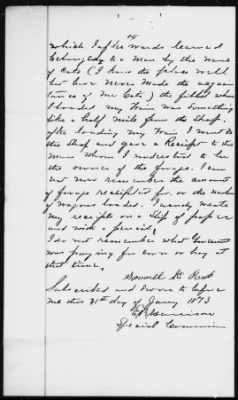 which I afterwards learned
belonged to a man by the name
of Cato (I know the place well
but have never made the acquain
tance of Mr Cato) the fields where
I loaded my train was something
like a half mile from the shop.
After loading my train I went to
the shop and gave a Receipt to the
man whom I understood to be
the owner of the forage. I can
not now remember the amount
of forage receipted for or the number
of wagons loaded. I merely wrote
my receipts on a slip of paper
and with a pencil.
I do not remember what Government
was paying for corn or hay at
that time.
Subscribed and sworn to before
me this 21st day of Jany 1873
Special Commissioner